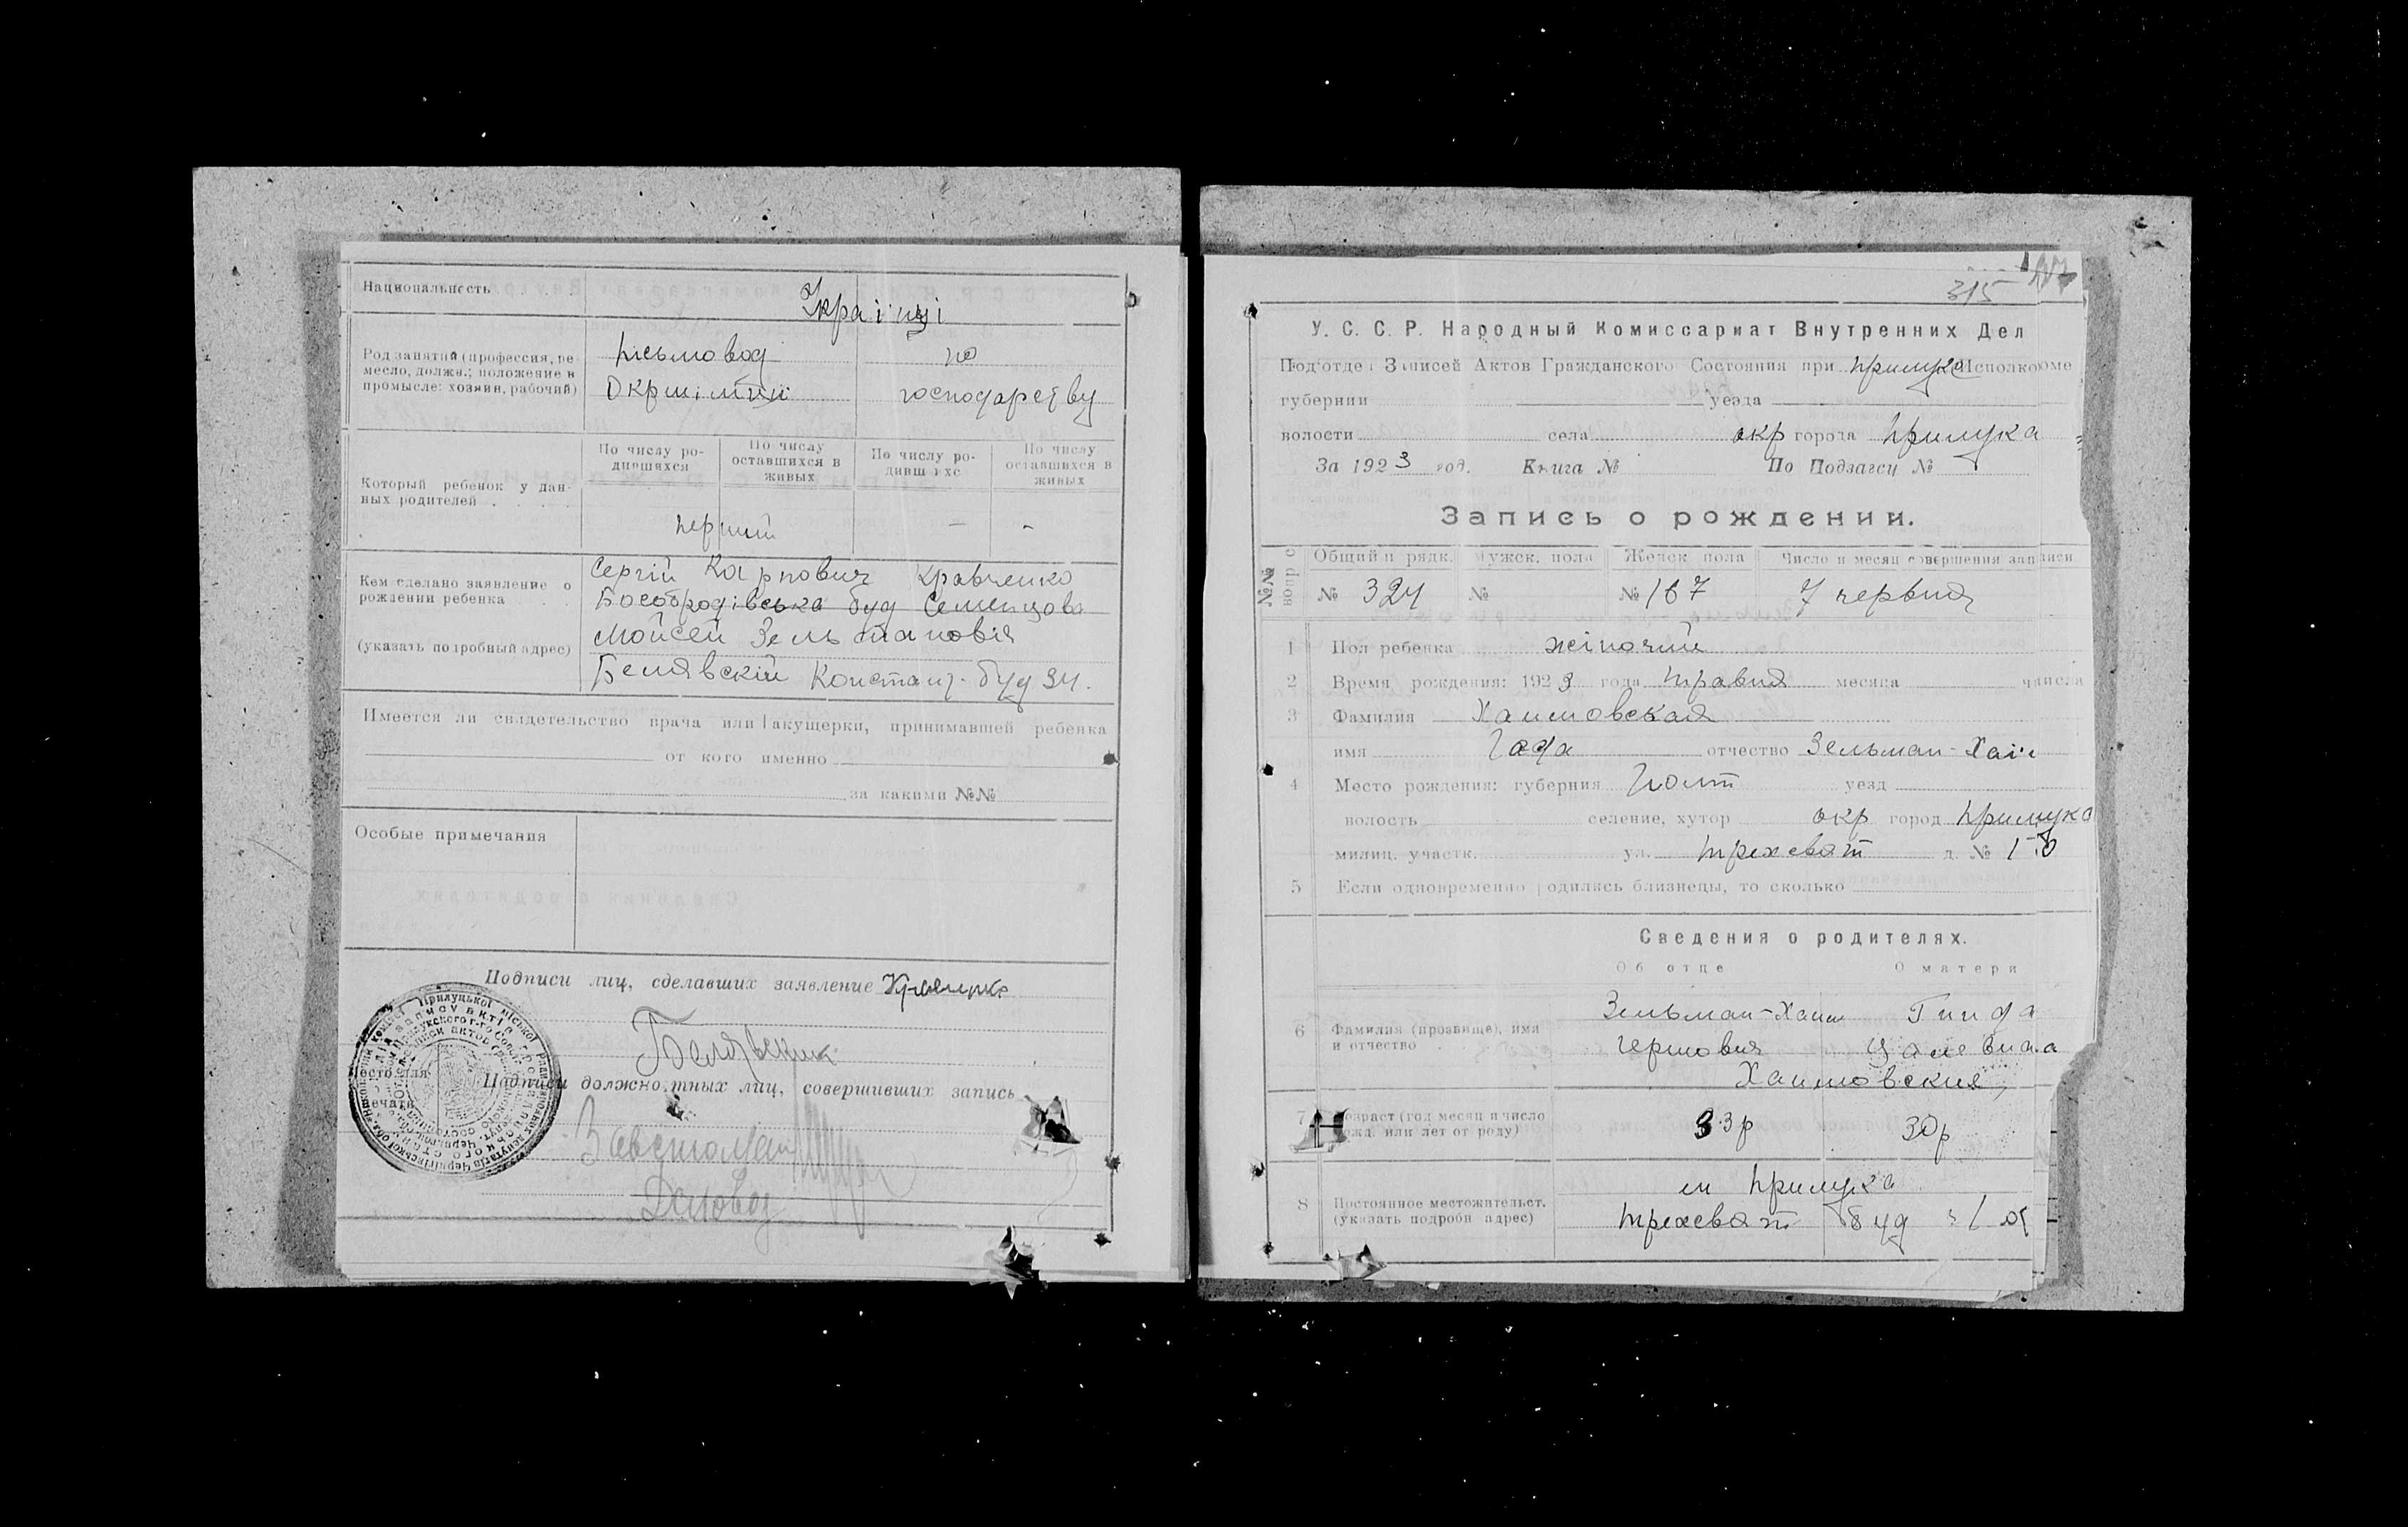 Национальность
Українці
Род занятий (профессия, ре-
месло, должн.; положение в
промысле: хозяин, рабочий)
письмовод по
господарству
По числу ро-
дившихся
По числу
оставшихся в
живых
По числу ро-
дивш ихс
По числу
оставшихся в
живых
Который ребенок у дан-
ных родителей
перший — -
Кем сделано заявление о
рождении ребенка
(указать подробный адрес)
Сергій Карпович Кравченко
буд Семенцова
Мойсей
Белявскій Констант. буд 34.
Имеется ли свидетельство врача или акушерки, принимавшей ребенка
от кого именно
за какими №№
Особые примечания
Подписи лиц, сделавших заявление Кравченко
Белявский
Место для
печати
Подписи должностных лиц, совершивших запись
Діловод
315
У. С. С. Р. Народный Комиссариат Внутренних Дел
Подотдел Записей Актов Гражданского Состояния при Прилука Исполкоме
губернии уезда
волости села окр города Прилука
За 1923 год. Книга № По Подзагсу №
Запись о рождении.
№№ вопрос
Общий п рядк. Мужск. пола Женск пола Число и месяц совершения записи
№ 324 № № 167 7 червня
1 Пол ребенка жіночий
2 Время рождения: 1923 года травня месяца числа
3 Фамилия Хаимовская
имя отчество Зельман-Хаім
4 Место рождения: губерния Полт уезд
волость селение, хутор окр город Прилука
милиц. участк. ул. Трехсвят д. №
5 Если одновременно родились близнецы, то сколько
Сведения о родителях.
Об отце О матери
6 Фамилия (прозвище), имя
и отчество
Зельман-Хаим Гинда
Хаимовские
7 Возраст (год месяц и число
рожд. или лет от роду)
33р 30р
8 Постоянное местожительст.
(указать подробн адрес)
м Прилука
Трехсвят буд